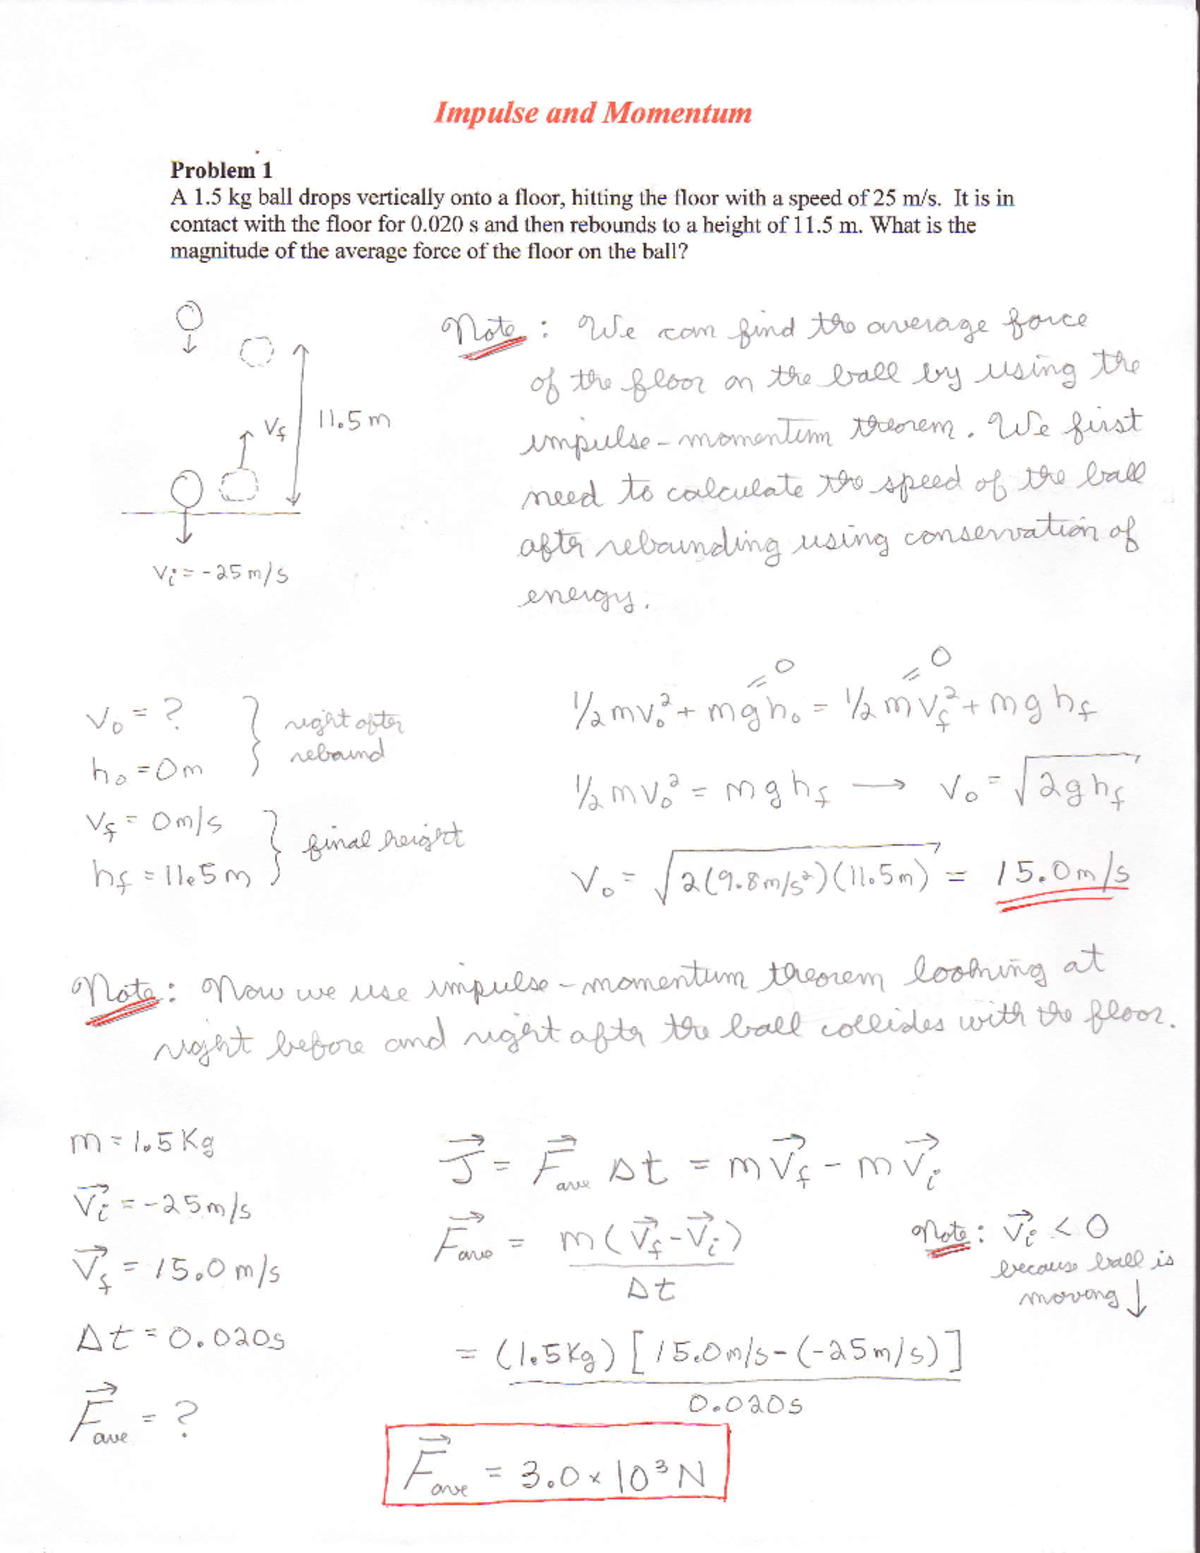 Impulse and Momentum
Problem 1
A 1.5 kg ball drops vertically onto a floor, hitting the floor with a speed of 25 m/s. It is in
contact with the floor for 0.020 s and then rebounds to a height of 11.5 m. What is the
magnitude of the average force of the floor on the ball?
Note: We can find the average force
of the floor on the ball by using the
impulse-momentum theorem. We first
need to calculate the speed of the ball
after rebounding using conservation of
energy.
11.5 m
V_f
V_i = -25 m/s
V_o = ?
h_o = 0m
right after
rebound
V_f = 0m/s
h_f = 11.5m
final height
=0 =0
½mv_o² + mgh_o = ½mv_f² + mgh_f
½mv_o² = mgh_f → V_o = √2gh_f
V_o = √2(9.8m/s²)(11.5m) = 15.0m/s
Note: Now we use impulse-momentum theorem looking at
right before and right after the ball collides with the floor.
m = 1.5Kg
V⃗_i = -25m/s
V⃗_f = 15.0 m/s
Δt = 0.020s
F⃗_ave = ?
J⃗ = F⃗_ave Δt = mV⃗_f - mV⃗_i
F⃗_ave = m(V⃗_f-V⃗_i)
Δt
Note: V⃗_i < 0
because ball is
moving ↓
= (1.5Kg) [15.0m/s-(-25m/s)]
0.020s
F⃗_ave = 3.0 × 10³ N